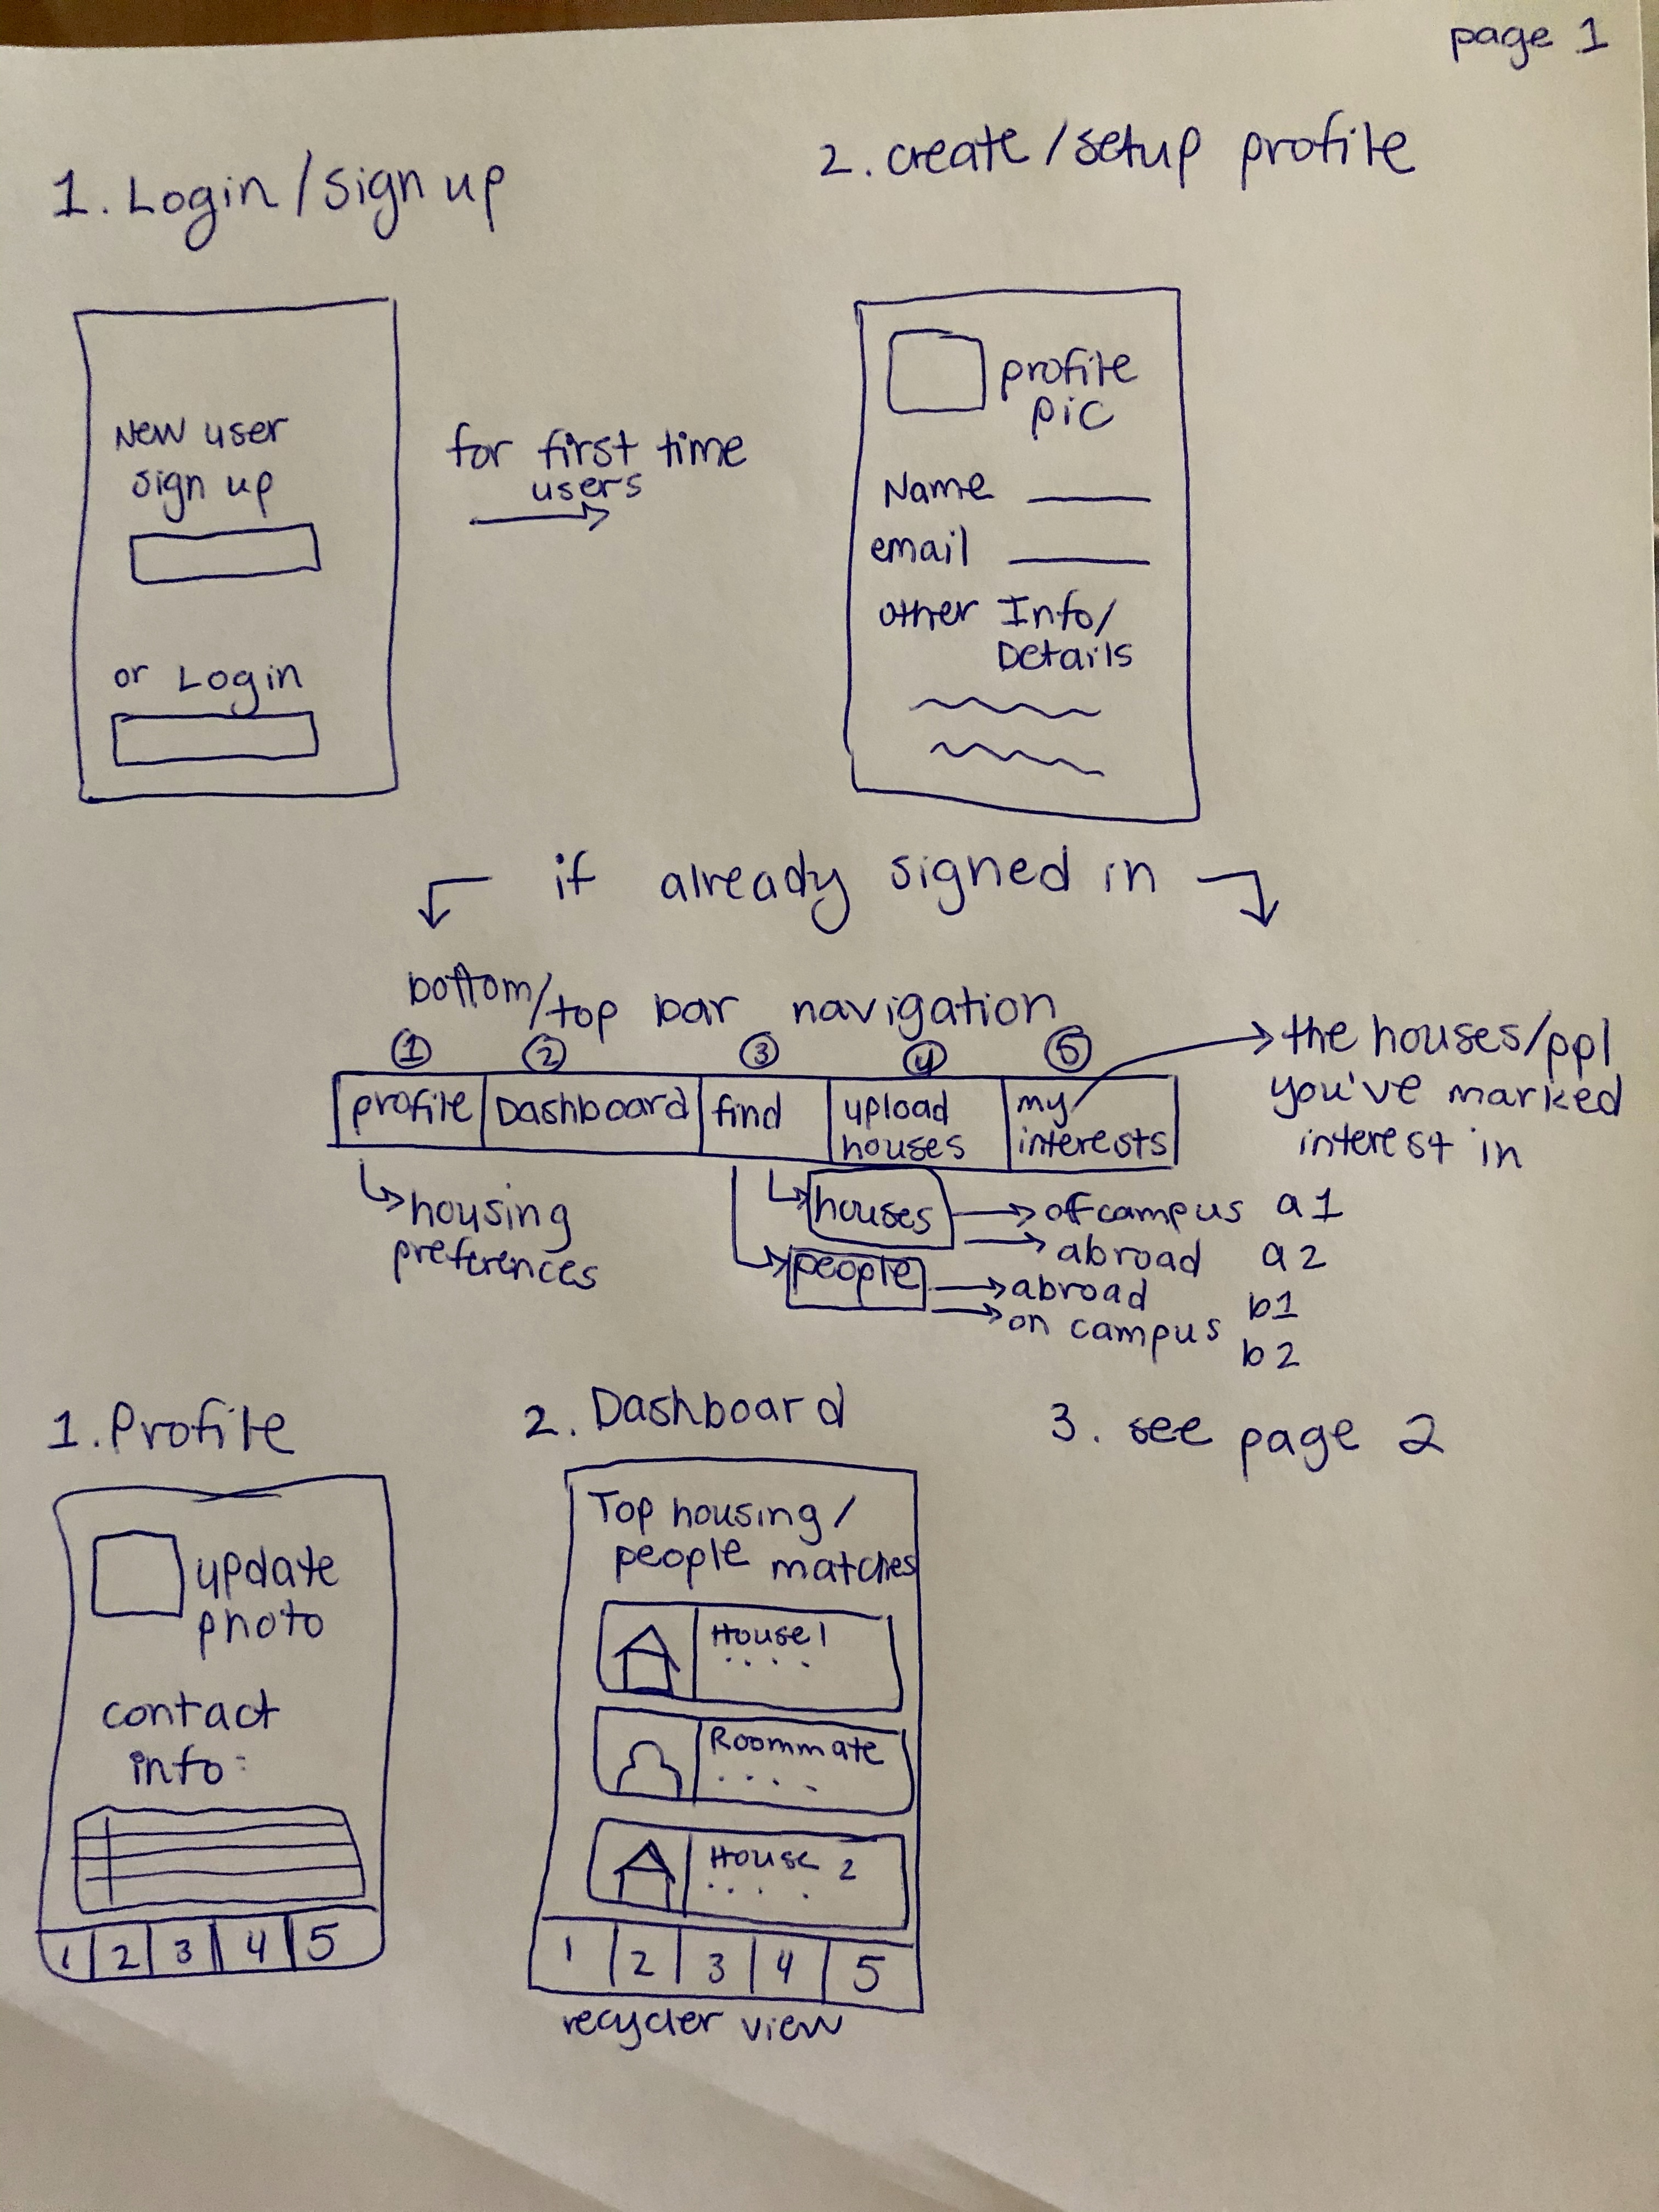 page 1
1. Login/sign up
2. create/setup profile
New user
sign up
or Login
for first time
users
profile
pic
Name
email
other Info/
Details
if already signed in
bottom/top bar navigation
1 2 3 4 5
profile Dashboard find upload houses my interests
the houses/ppl
you've marked
interest in
housing
preferences
houses
of campus a1
abroad a2
people
abroad b1
on campus b2
1. Profile
update
photo
contact
info:
1 2 3 4 5
2. Dashboard
Top housing/
people matches
House 1
Roommate
House 2
1 2 3 4 5
recycler view
3. see page 2